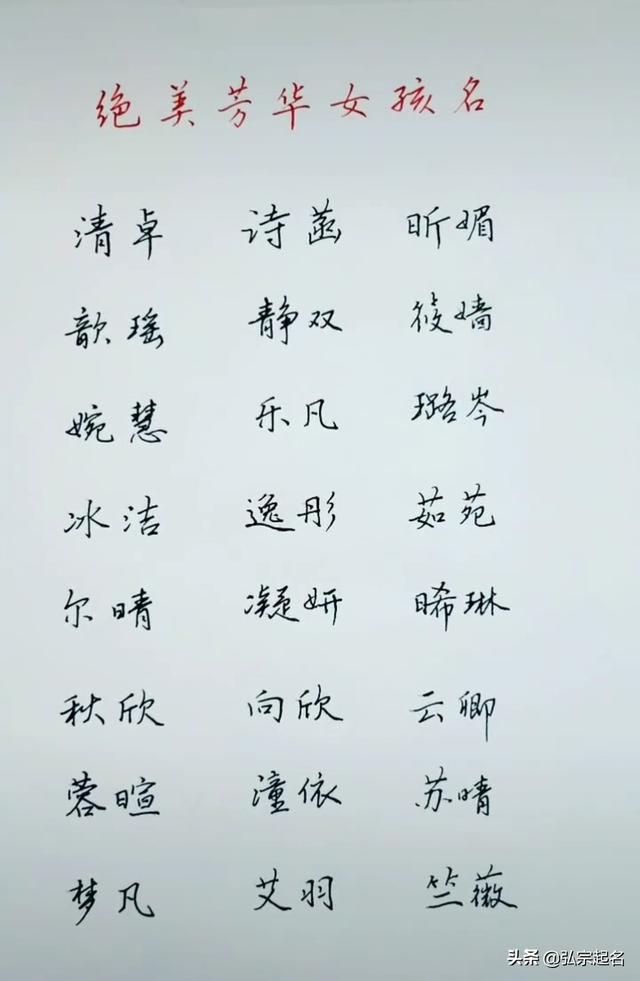 绝美芳华女孩名
清卓 诗菡 昕媚
歆瑶 静双 筱嫱
婉慧 乐凡 璐岑
冰洁 逸彤 茹苑
尔晴 凝妍 晞琳
秋欣 向欣 云卿
蓉暄 潼依 苏晴
梦凡 艾羽 竺薇
头条 @弘宗起名